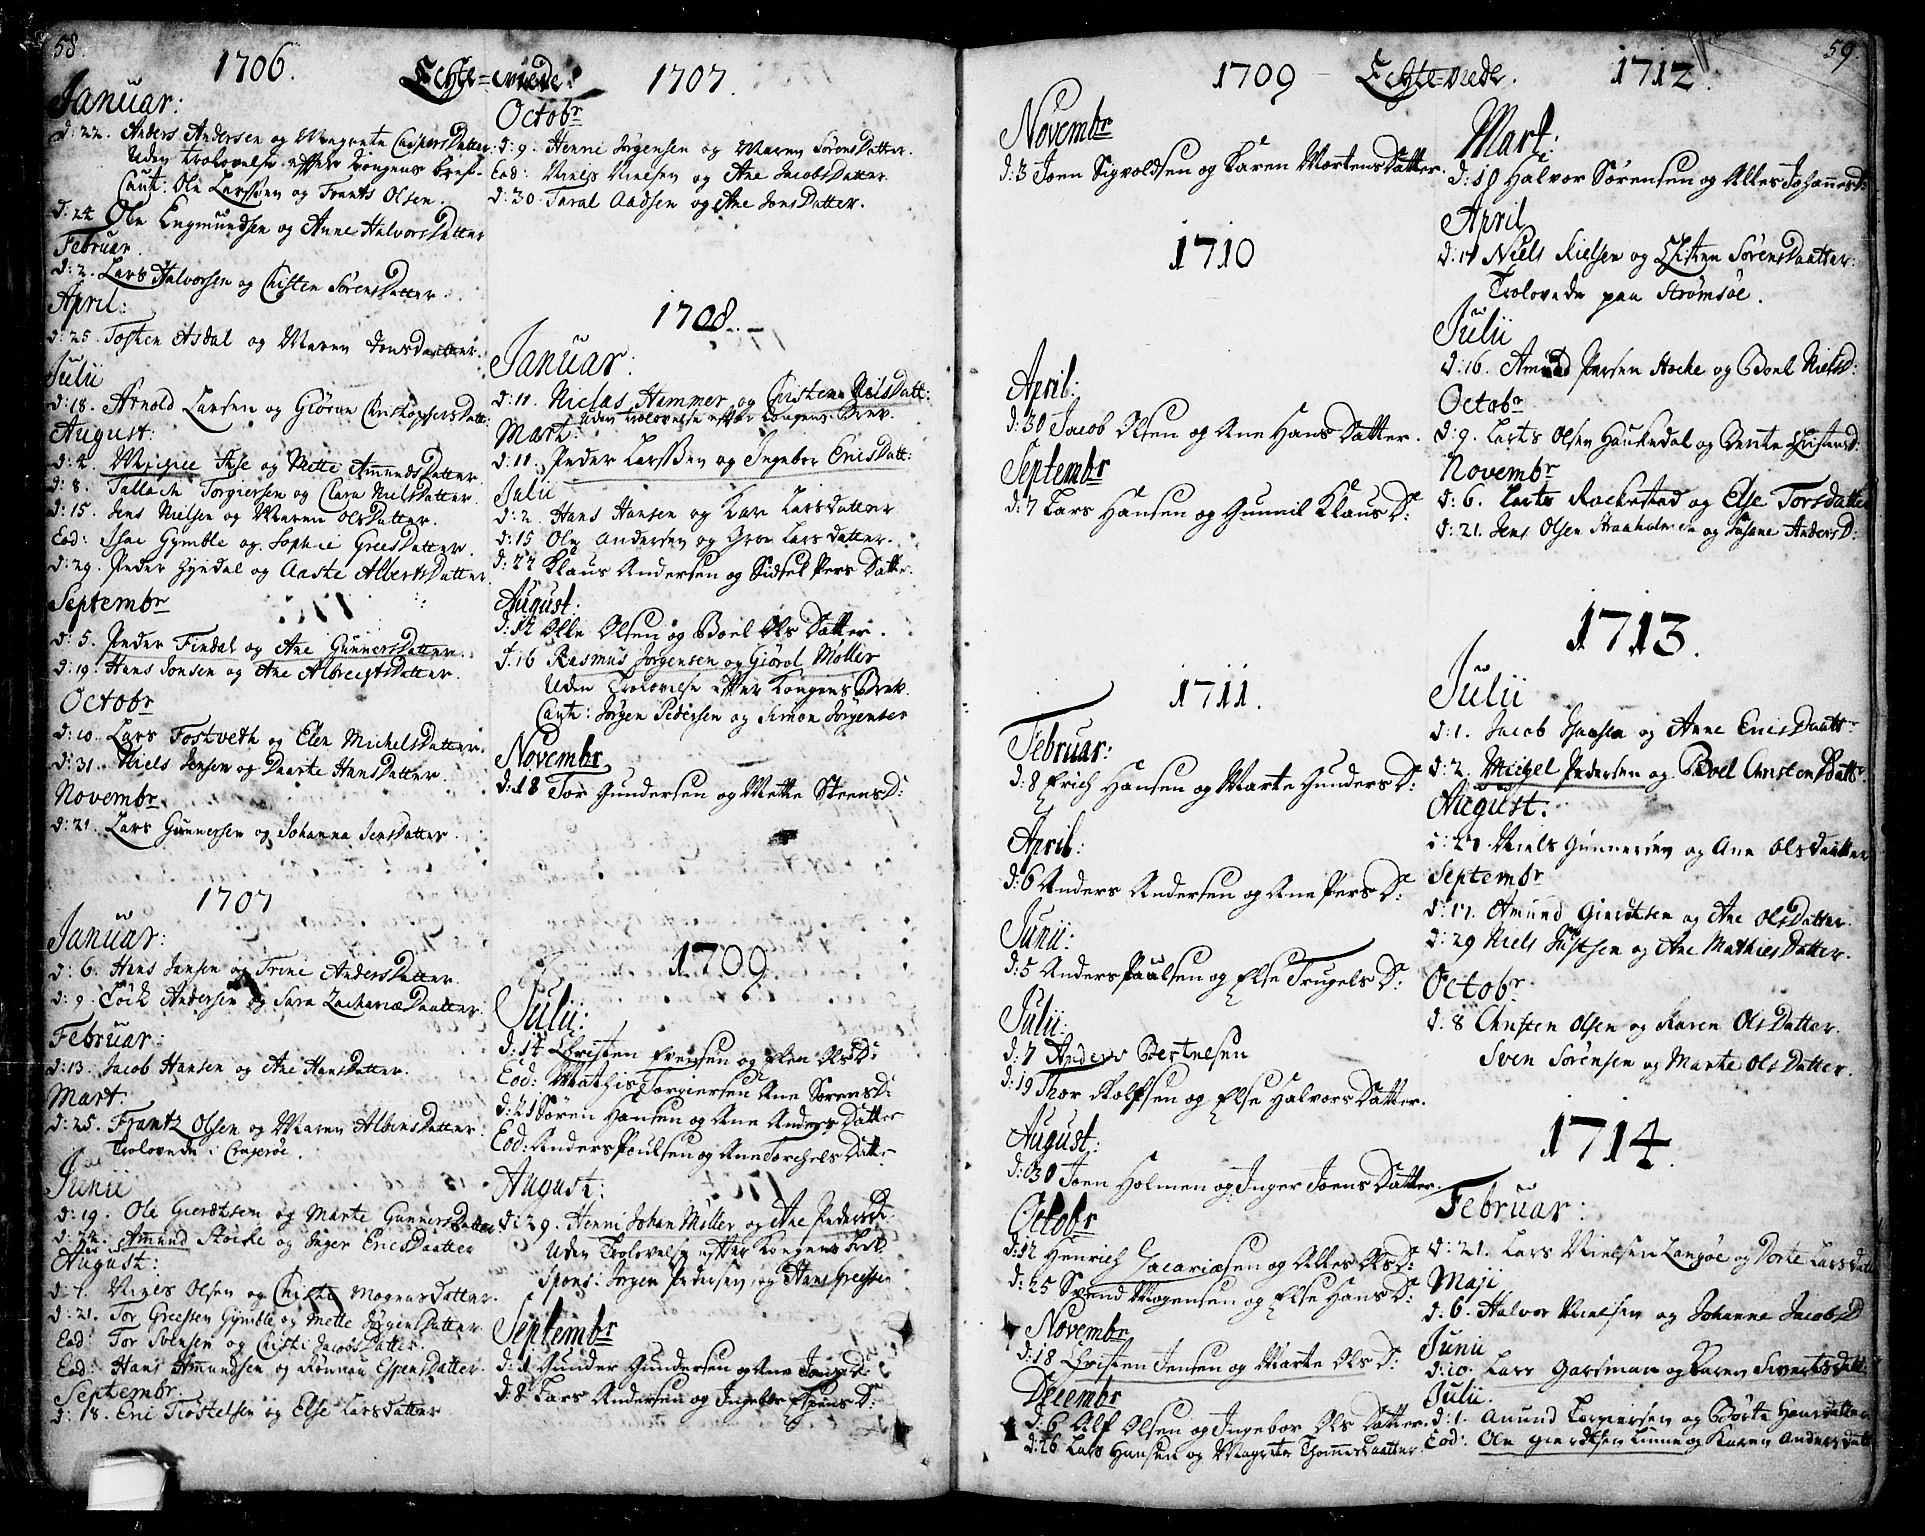 58.
1706.
Echte-viede.
Januar:
d: 22. Anders Andersen og Margrete CaspersDatter
Uden trolovelse efter Kongens bref.
Caut: Ole Larssen og Frants Olsen.
d: 24 Ole Engmundsen og Anne HalvorsDatter
Februar.
d: 2. Lars Halvorsen og Christen SörensDatter
April:
d: 25. Tosten Asdal og Maren JonsDaatter.
Julii
d: 18. Arnold Larsen og Giöron ChristophersDatt:
August:
d: 4. og Mette AmundsDatter
d: 8. Tallach Torgiersen og Clara NilsDatter
d: 15. Jens Nielsen og Maren OlsDatter.
Eod: Isac Gymble og Sophie GreesDatter.
d: 29. Peder Zyndal og Aaste AlbertsDatter
Septembr
d: 5. Peder Findal og Ane GunnersDatter.
d: 19. Hans Jonsen og Ane AlbrechtsDatter.
Octobr
d: 10. Lars Fostveth og Elen MichelsDatter.
d: 31. Niels Jensen og Daarte HansDatter.
Novembr
d: 21. Lars Gunnersen og Johanna JensDatter.
1707
Januar:
d: 6. Hans Jansen og Trine AndersDatter.
d: 9. Andersen og Sara ZachariæDaatter.
Februar:
d: 13. Jacob Hansen og Ane HansDatter.
Mart.
d: 25. Frantz Olsen og Maren AlbinsDatter.
Trolovede i Crageröe.
Junii
d: 19. Ole Gierdtsen og Marte GunnersDatter
d: 24. Amund Stocke og Inger EricsDaatter
August:
d: 1. Olsen og Christi MagnusDatter.
d: 21. Tor Greessen Gymble og Mette JörgensDatter
Eod: Tor Svensen og Christi JacobsDatter.
Eod: Hans Amundsen og Rönnau EspensDatter.
Septembr.
d: 18. Eric Trostelsen og Else LarsDatter
1707.
Octobr
d: 9. Henric Jörgensen og Maren SörensDatter.
Eod: Niels Nielsen og Ane JacobsDatter
d: 30. Taral Aadsen og Ane JonsDatter.
1708.
Januar:
d: 11. Niclas Hammer og Christense NielsDatt:
Uden trolovelse efter Kongens Brev.
Mart:
d: 11. Peder Larssen og Ingebor EricsDatt:
Julii
d: 2. Hans Hansen og Kari LarsDatter
d: 15 Ole Andersen og Groe Lars datter.
d: 22 Klaus Andersen og Sidsel Pers Datter.
August:
d: 12 Olle Olsen og Boel Ols Datter.
d. 16 Rasmus Jorgensen og Giörol Moller
Uden Trolovelse efter Kongens Brev.
Caut: Jörgen Pedersen og Simon Jörgensen
Novembr
d: 18 Tor Gundersen og Mette SteensD:
1709
Julii:
d: 14 Christen Evensen og Elen OlsD:
Eod: Mathis Torgiersen Ane SörensD:
d: 21 Sören Hansen og Ane Anders Datter
Eod: Anders Poulsen og Ane Torchels Datter
August:
d: 29. Henric Johan Möller og Ane PedersD:
Uden Trolovelse efter Kongens Brev.
Spons: Jörgen Pedersen og Hans Greessen
Septembr
d: 1 Gunder Gundersen og Ane JensD:
d: 8 Lars Andersen og Ingebor Espens D:
59.
1709
Echte-viede.
Novembr
d: 3 Joen Sigvoldsen og Karen MortensDatter.
1710
April:
d: 30 Jacob Olsen og Ane Hans Datter.
Septembr
d: 7 Lars Hansen og Gunnil Klaus D:
1711.
Februar:
d: 8 Erich Hansen og Marte Gunders D:
April:
d: 6 Anders Andersen og Ane Pers D:
Junii:
d: 5 Anders Paulsen og Else Trugels D:
Julii:
d: 7 Anders Bertelsen
d: 19 Thor Rolfsen og Else Halvors Datter.
August:
d: 30 Joen Holmen og Inger Joens Datter.
Octobr
d: 12 Henrich Zacariæsen og Alles OlsD:
d: 25 Svend Mogensen og Else Hans D:
Novembr
d: 18 Christen Jensen og Marte Ols D:
Decembr
d: 6 Alf Olsen og Ingebor Ols Datter.
d: 26 Lars Hansen og Magrete ThomesDaatter
1712.
Mart:
d: 10 Halvor Sörensen og Alles JohannesD:
April
d: 17 Niels Nielsen og Christen SörensDaatter:
Trolovede paa Strömsöe.
Julii
d: 16. Amund Persen Hocke og Boel NielsD:
Octobr
d: 9. Larts Olsen Haukedal og Bente
Novembr
d: 6. Larts Rockestad og Else TorsDatter
d: 21. Jens Olsen Straaholmen og Susane AndersD:
1713.
Julii
d: 1. Jacob Isacsen og Anne EricsDaattr
d: 2. Michel Pedersen og Boel ChristensDattr.
August:
d: 27 Niels Gunnersen og Ane OlsDaatter
Septembr
d: 17. Amund Gierdtsen og Ane OlsDatter.
d: 29 Niels Justsen og Ane MathiesDatter.
Octobr
d: 8 Christen Olsen og Karen OlsDatter.
Sven Sörensen og Marte OlsDatter.
1714.
Februar:
d: 21. Lars Nielsen Langöe og Dorte LarsDatt
Maji
d: 6. Halvor Nielsen og Johanna JacobsD
Junii
d: 10. Lars Garsman og Karen SivertsDatt
Julii.
d: 1. Anund Torgiersen og Börte Hansdatter
Eod: Ole Gierdtsen Linne og Karen AndersDatt